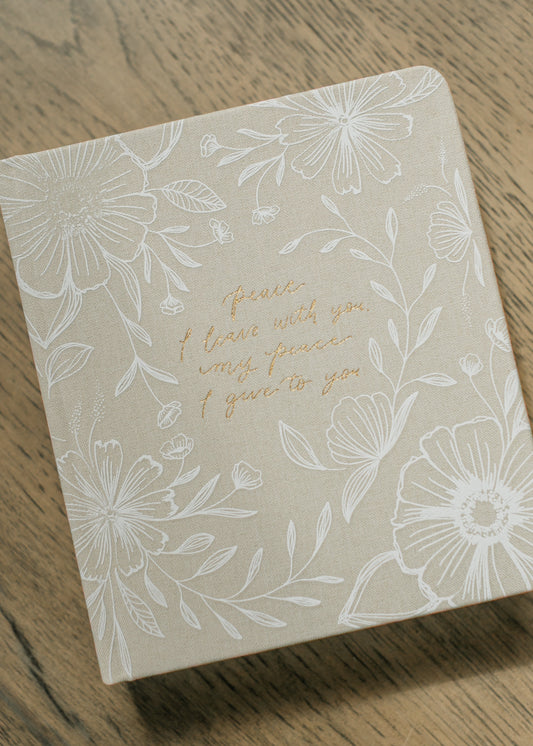 peace
I leave with you.
my peace
I give to you